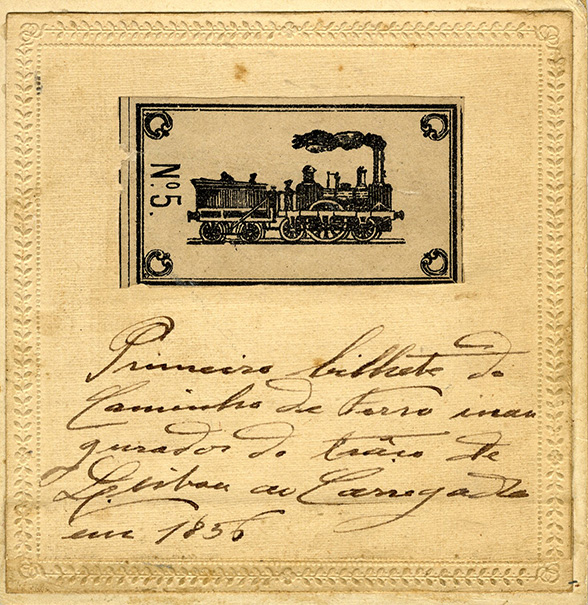 Nº 5.
Primeiro bilhete do
Caminho de Ferro inau
gurados do troço de
Lisboa ao Carregado
em 1856